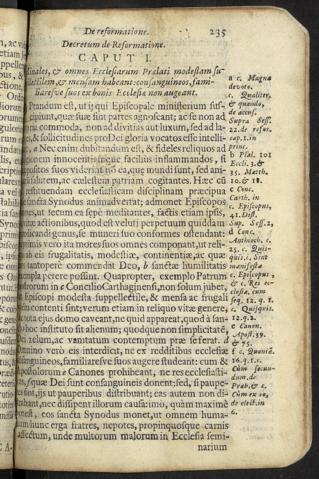 De reformatione. 235
Decretum de Reformatione.
CAPUT I.
& omnes Ecclesiarum Prælati modestam su-
& mensam habeant: consanguineos, fami-
suos ex bonis Ecclesiæ non augeant.
est, ut ij qui Episcopale ministerium sus-
quæ suæ sint partes agnoscant: ac se non ad
commoda, non ad divitias aut luxum, sed ad la-
& solicitudines pro Dei gloria vocatos esse intelli-
a Nec enim dubitandum est, & fideles reliquos ad
innocentiamque facilius inflammandos, si
suos viderint
ea, quæ mundi sunt, sed ani-
salutem, ac cælestem patriam cogitantes. Hæc cũ
restituendam ecclesiasticam disciplinam præcipua
sancta Synodus animadvertat; admonet Episcopos
ut secum ea sepè meditantes, factis etiam ipsis,
actionibus, quod est veluti perpetuum quiddam
prædicandi genus, se muneri suo conformes ostendant:
verò ita mores suos omnes componant, ut reli-
eis frugalitatis, modestiæ, continentiæ, ac quæ
tantoperè commendat Deo, & sanctæ humilitatis
petere possint. Quapropter, exemplo Patrum
in e Concilio Carthaginensi, non solum jubet,
Episcopi modesta supellectile, & mensa ac frugali
contenti sint; verum etiam in reliquo vitæ genere,
tota ejus domo caveant, ne quid appareat, quod à san-
hoc instituto sit alienum; quodque non simplicitatẽ,
zelum, ac vanitatum contemptum præ se ferat. d
verò eis interdicit, ne ex redditibus ecclesiæ
consanguineos, familiaresve suos augere studeant: cum &
Apostolorum e Canones prohibeant, ne res ecclesiasti-
quæ Dei sunt consanguineis donent; sed, si paupe-
sint, ijs ut pauperibus distribuant; eas autem non di-
nec dissipent illorum causa: imò, quàm maximè
eos sancta Synodus monet, ut omnem huma-
hunc erga fratres, nepotes, propinquosque carnis
affectum, unde multorum malorum in Ecclesia semi-
narium
a c. Magnæ
devoto.
c. Qualiter,
& quando,
de accus.
Supra Sess.
22. de refor.
cap. 1. in
princ.
b Psal. 101
Eccli. 3. &
35. Matth.
10. & 18.
c Conc.
Carth. in
c. Episcopus,
41. Dist.
Sup. Sess. 2,
d Conc.
Antioch. c.
25. c. Quin
quis. c. Sint
manifestæ
e Episcopus 2
& c. Res ec-
clesiæ, cum
seq. 12. q. 1.
c. Quisquis.
12. q. 2.
e Canon.
Apost. 39.
& 75.
f c. Quoniã.
16. q. 1. c.
Cùm secun-
dum, de
Præb. & c.
Cùm ex eo,
de elect. in
6.